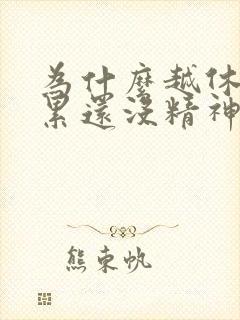 為什麼越休
累還沒精神
熊東帆